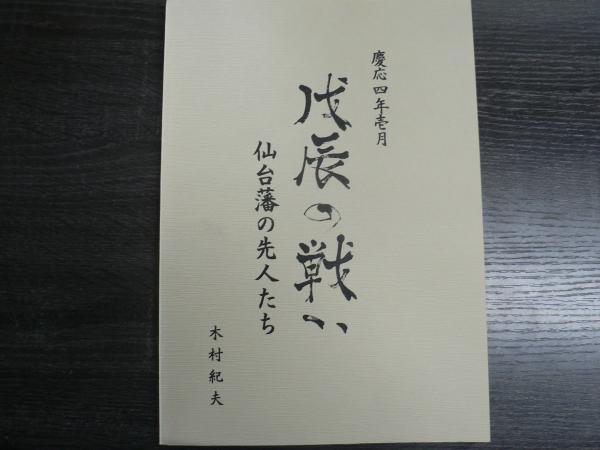 慶応四年壱月
戊辰の戦い
仙台藩の先人たち
木村紀夫